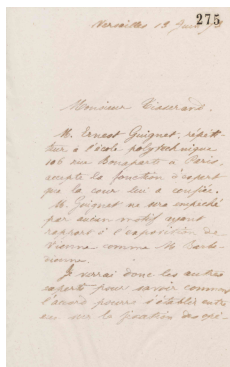 275
Versailles 18 Juin 73
Monsieur Tisserand.
M. Ernest Guignet, répéti-
teur à l'école polytechnique
106 rue Bonaparte à Paris,
accepte la fonction d'expert
que la cour lui a confiée.
M. Guignet ne sera empêché
par aucun motif ayant
rapport à l'exposition de
Vienne comme M Barbe-
dienne.
Je verrai donc les autres
experts pour savoir comment
l'accord pourra s'établir entre
eux sur la fixation des opé-